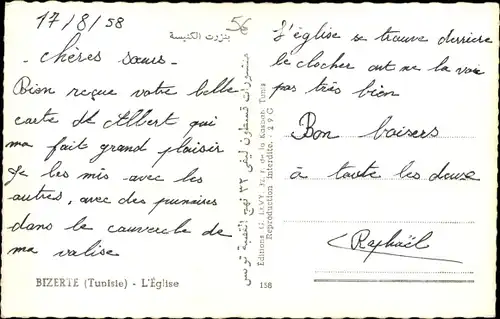 17/8/58
56
chères sœurs -
Bien reçue votre belle
carte d'Albert qui
ma fait grand plaisir
je les mis avec les
autres, avec des punaises
dans le couvercle de
ma valise
BIZERTE (Tunisie) - L'Église
بنزرت الكنيسة
Editions G. LEVY, de la Kasbah, Tunis
Reproduction Interdite.
158
L'église se trouve derrière
le clocher ont ne la voie
pas très bien
Bon baisers
à toute les deux
Raphaël